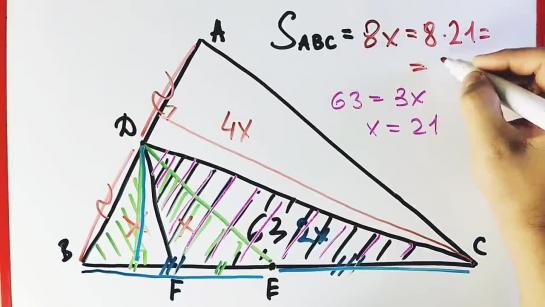 A
S ABC = 8x = 8·21 =
=
63 = 3x
x = 21
4x
D
x x 63 2x
B F E C